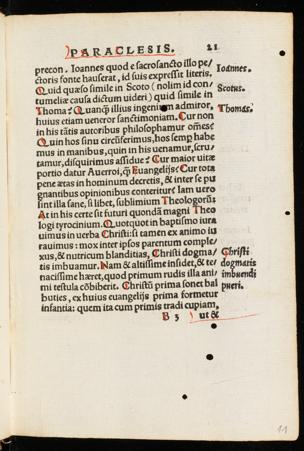 PARACLESIS. 21
precon. Ioannes quod e sacrosancto illo pe/
ctoris fonte hauserat, id suis expressit literis.
Quid quæso simile in Scoto (nolim id con/
tumeliæ causa dictum uideri) quid simile in
Thoma? Quanꝙ̃ illius ingenium admiror,
huius etiam ueneror sanctimoniam. Cur non
in his tãtis autoribus philosophamur om̃es?
Quin hos sinu circũferimus, hos semꝑ habe
mus in manibus, quin in his uenamur, scru/
tamur, disquirimus assidue? Cur maior uitæ
portio datur Auerroi, ꝙ̃ Euangelijs? Cur tota
pene ætas in hominum decretis, & inter se pu
gnantibus opinionibus conteritur? Iam uero
sint illa sane, si libet, sublimium Theologorũ:
At in his certe sit futuri quondã magni Theo
logi tyrocinium. Quotquot in baptismo iura
uimus in uerba Christi: si tamen ex animo iu
rauimus: mox inter ipsos parentum comple/
xus, & nutricum blanditias, Christi dogma/
tis imbuamur. Nam & altissime insidet, & te/
nacissime hæret, quod primum rudis illa ani/
mi testula cõbiberit. Christũ prima sonet bal
buties, ex huius euangelijs prima formetur
infantia: quem ita cum primis tradi cupiam,
B 3 ut &
Ioannes.
Scotus.
Thomas.
Christi
dogmatis
imbuendi
pueri.